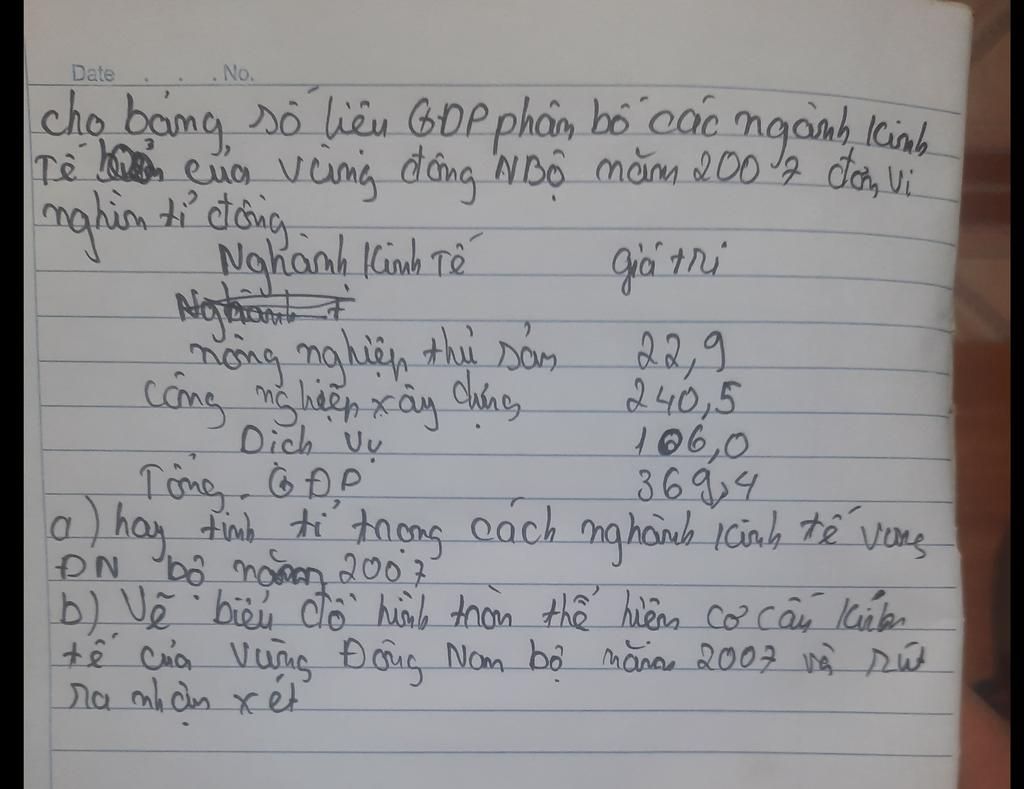 Date . . . No.
cho bảng số liệu GDP phân bố các ngành Kinh
Tế của Vùng đông NBộ năm 2007 đơn vị
nghìn tỉ đồng
Nghành Kinh Tế giá trị
nông nghiệp thủ sản 22,9
Công nghiệp xây dựng 240,5
Dich vụ 106,0
Tổng. GĐP 369,4
a) hay tinh tỉ trọng cách nghành kinh tế vung
ĐN bộ năm 2007
b) Vẽ biểu đồ hình tròn thể hiện cơ cấu kinh
tế của vùng Đông Nam bộ năm 2007 và rút
ra nhận xét